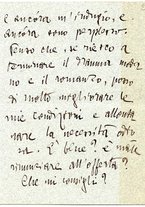 e ancora m'indugio, e
ancora sono perplesso.
Penso che, se riesco a
terminare il dramma
no e il romanzo, potrò
di molto migliorare le
mie condizioni e allonta
nare la necessità odio
sa. È bene? è male
rinunziare all'offerta?
Che mi consigli?